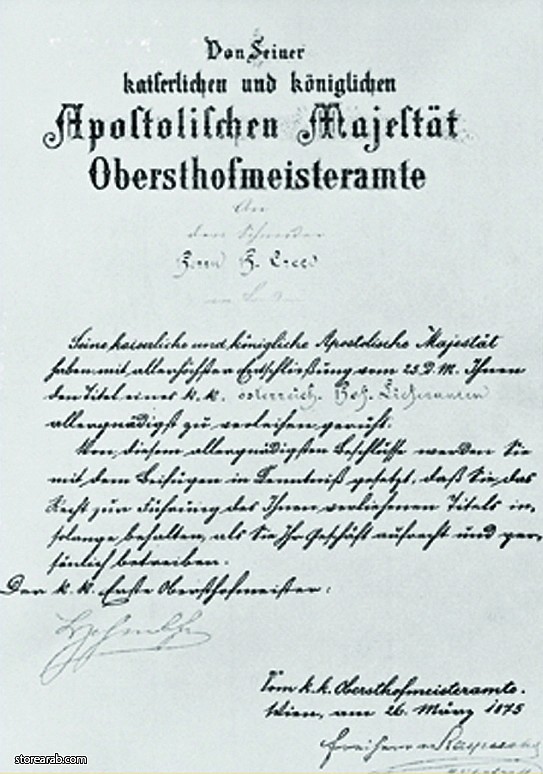 Von Seiner
kaiserlichen und königlichen
Apostolischen Majestät
Obersthofmeisteramte
An
den Schneider
Herrn H. Creed
in London
Seine kaiserliche und königliche Apostolische Majestät
haben mit allerhöchster Entschließung vom 23. d. M. Ihnen
den Titel eines k. k. österreich. Hof-Lieferanten
allergnädigst zu verleihen geruht.
Von diesem allergnädigsten Beschlusse werden Sie
mit dem Beifügen in Kenntniß gesetzt, daß Sie das
Recht zur Führung des Ihnen verliehenen Titels in-
solange behalten, als Sie Ihr Geschäft aufrecht und per-
sönlich betreiben.
Der k. k. Erste Obersthofmeister:
Vom k. k. Obersthofmeisteramte.
Wien, am 26. März 1875
Freiherr
storearab.com